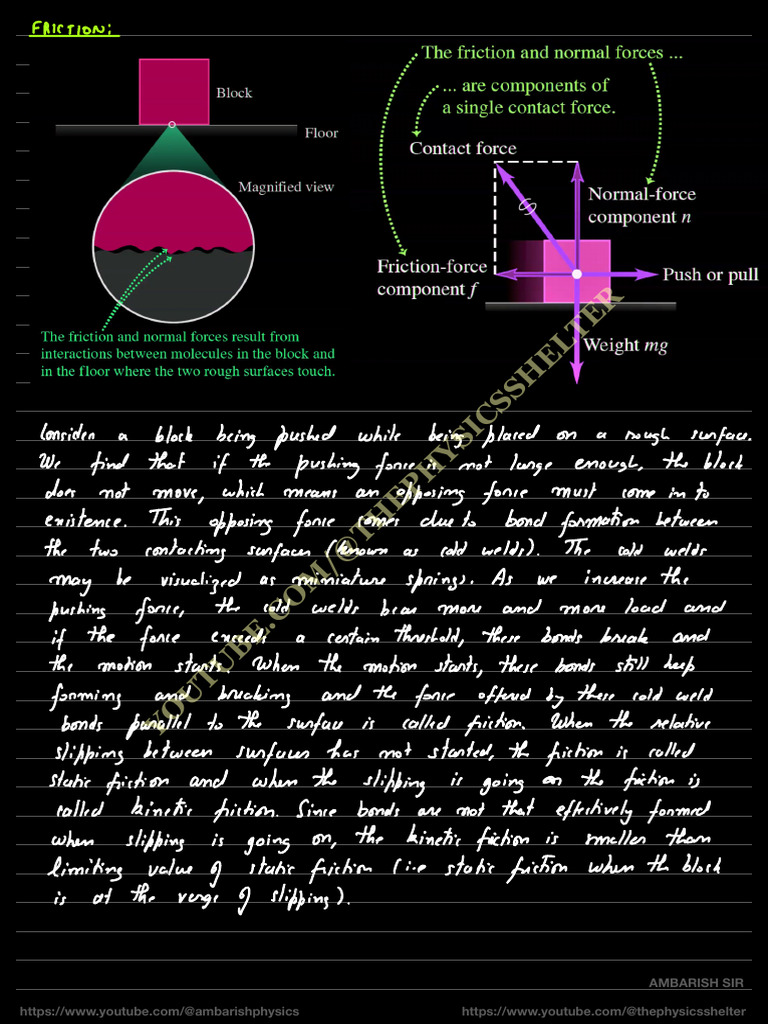 FRICTION:
Block
Floor
Magnified view
The friction and normal forces result from
interactions between molecules in the block and
in the floor where the two rough surfaces touch.
The friction and normal forces ...
... are components of
a single contact force.
Contact force
Normal-force
component n
Friction-force
component f
Push or pull
Weight mg
Consider a block being pushed while being placed on a rough surface.
We find that if the pushing force is not large enough, the block
does not move, which means an opposing force must come in to
existence. This opposing force comes due to bond formation between
the two contacting surfaces (known as cold welds). The cold welds
may be visualized as miniature springs. As we increase the
pushing force, the cold welds bear more and more load and
if the force exceeds a certain threshold, these bonds break and
the motion starts. When the motion starts, these bonds still keep
forming and breaking and the force offered by these cold weld
bonds parallel to the surface is called friction. When the relative
slipping between surfaces has not started, the friction is called
static friction and when the slipping is going on the friction is
called kinetic friction. Since bonds are not that effectively formed
when slipping is going on, the kinetic friction is smaller than
limiting value of static friction (i.e static friction when the block
is at the verge of slipping).
YOUTUBE.COM/@THEPHYSICSSHELTER
AMBARISH SIR
https://www.youtube.com/@ambarishphysics
https://www.youtube.com/@thephysicsshelter